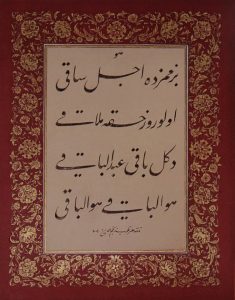 هو
بزمزده اجل ساقی
اولوروز حقه ملاقی
دكل باقی عبد الباقی
هو الباقی هو الباقی